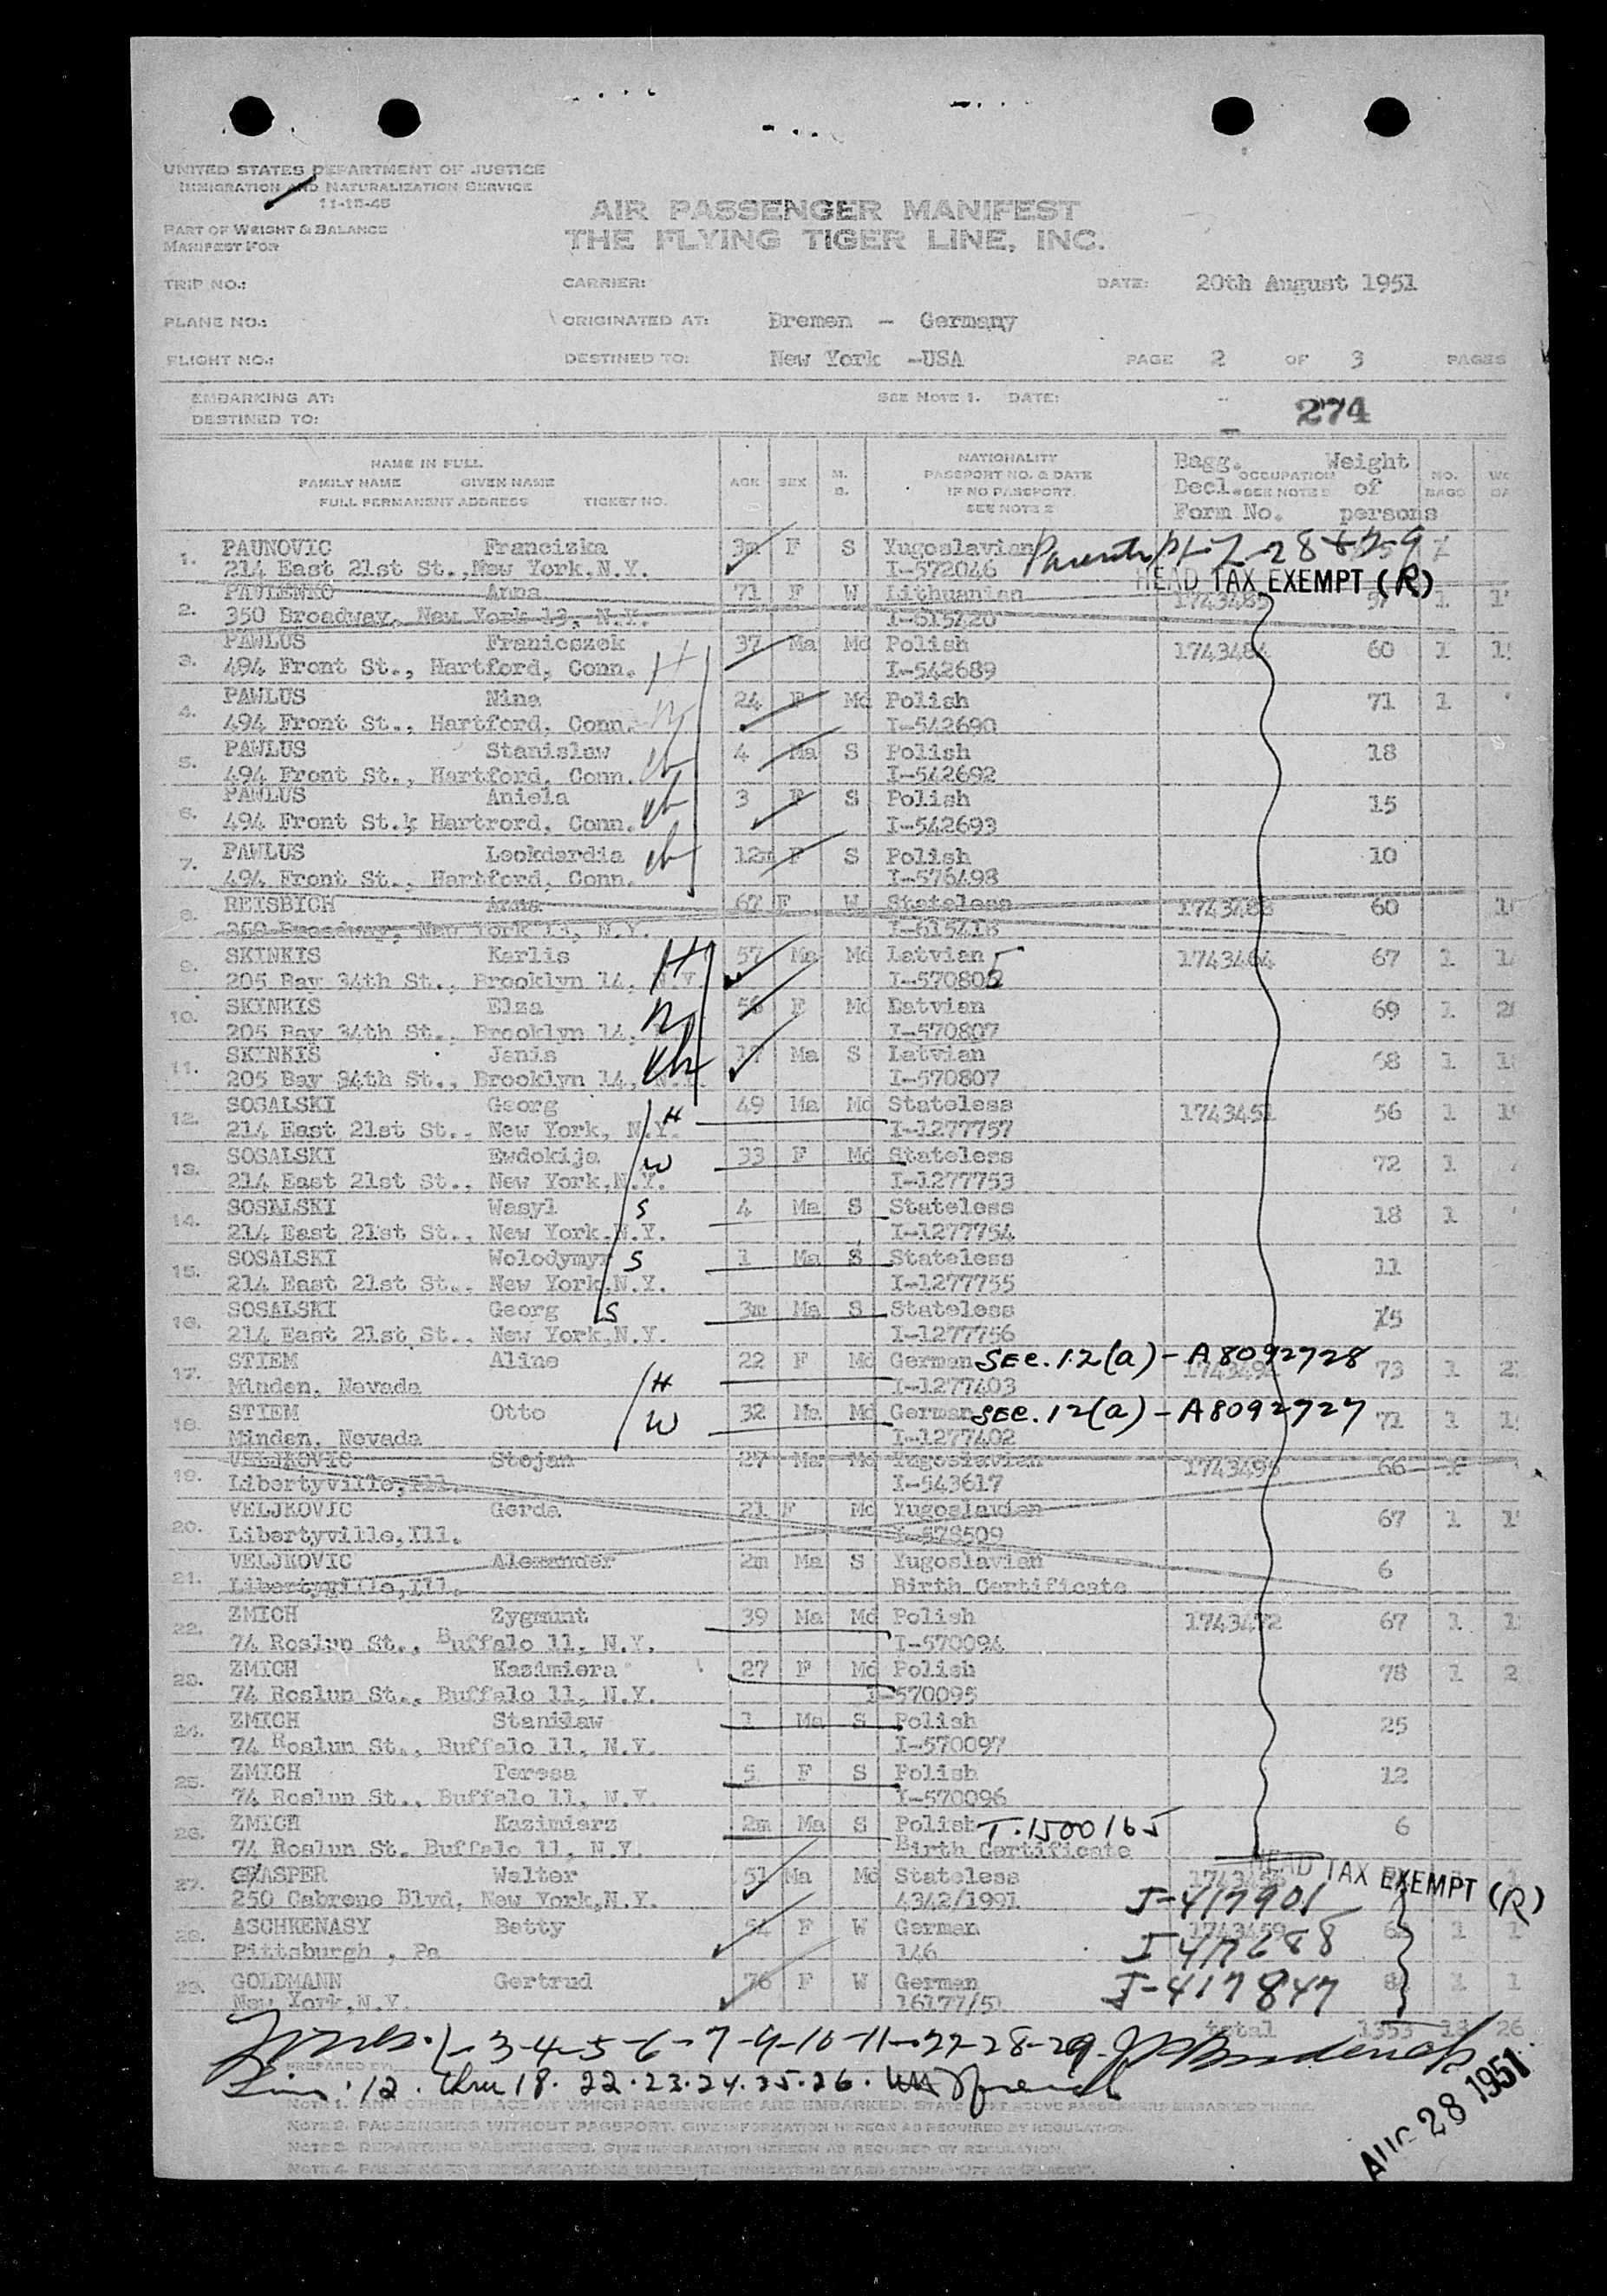 UNITED STATES DEPARTMENT OF JUSTICE
IMMIGRATION AND NATURALIZATION SERVICE
11-15-45
AIR PASSENGER MANIFEST
PART OF WEIGHT & BALANCE
MANIFEST FOR
THE FLYING TIGER LINE, INC.
TRIP NO.: CARRIER: DATE: 20th August 1951
PLANE NO.: ORIGINATED AT: Bremen - Germany
FLIGHT NO.: DESTINED TO: New York -USA PAGE 2 OF 3 PAGES
EMBARKING AT: SEE NOTE 1. DATE:
DESTINED TO: 274
NAME IN FULL
FAMILY NAME GIVEN NAME
FULL PERMANENT ADDRESS TICKET NO.
AGE SEX M. S.
NATIONALITY
PASSPORT NO. & DATE
IF NO PASSPORT.
SEE NOTE 2
Bagg. OCCUPATION Weight
Decl. SEE NOTE of
Form No. persons
NO. BAGS
1. PAUNOVIC Franciszka 3m F S Yugoslavian Parents
214 East 21st St.,New York.N.Y. I-572046
HEAD TAX EXEMPT (R)
2. PAVLENKO Anna 71 F W Lithuanian 1743485 57 1
350 Broadway, New York 13, N.Y. I-615420
3. PAWLUS Franicszek 37 Ma Md Polish 1743484 60 1
494 Front St., Hartford, Conn. H I-542689
4. PAWLUS Nina 24 F Md Polish 71 1
494 Front St., Hartford, Conn. I-542690
5. PAWLUS Stanislaw 4 Ma S Polish 18
494 Front St., Hartford, Conn. ch I-542692
6. PAWLUS Aniela 3 F S Polish 15
494 Front St.k Hartrord, Conn. ch I-542693
7. PAWLUS Leokdardia 12m F S Polish 10
494 Front St., Hartford, Conn. ch I-576498
8. REISBICH Anna 67 F W Stateless 1743488 60
350 Broadway, New York 13, N.Y. I-615418
9. SKINKIS Karlis H 57 Ma Md Latvian 1743464 67 1
205 Bay 34th St., Brooklyn 14, N.Y. I-570805
10. SKINKIS Elza 56 F Md Latvian 69 1
205 Bay 34th St., Brooklyn 14, I-570807
11. SKINKIS Janis ch 17 Ma S Latvian 68 1
205 Bay 34th St., Brooklyn 14, N.Y. I-570807
12. SOSALSKI Georg H 49 Ma Md Stateless 1743451 56 1
214 East 21st St., New York, N.Y. I-1277757
13. SOSALSKI Ewdokija W 33 F Md Stateless 72 1
214 East 21st St., New York,N.Y. I-1277753
14. SOSALSKI Wasyl S 4 Ma S Stateless 18 1
214 East 21st St., New York,N.Y. I-1277754
15. SOSALSKI Wolodymyr S 1 Ma S Stateless 11
214 East 21st St., New York,N.Y. I-1277755
16. SOSALSKI Georg S 3m Ma S Stateless 15
214 East 21st St., New York,N.Y. I-1277756
17. STIEM Aline 22 F Md German SEC. 12(a) - A8092728 73 1
Minden, Nevada H I-1277403
18. STIEM Otto W 32 Ma Md German SEC. 12(a) - A8092727 71 1
Minden, Nevada I-1277402
19. VELJKOVIC Stojan 27 Ma Md Yugoslavian 1743495 66
Libertyville,Ill. I-543617
20. VELJKOVIC Gerda 21 F Md Yugoslavian 67 1
Libertyville,Ill. I-578509
21. VELJKOVIC Alexander 2m Ma S Yugoslavian 6
Libertyville,Ill. Birth Certificate
22. ZMICH Zygmunt 39 Ma Md Polish 1743472 67 1
74 Roslun St., Buffalo 11, N.Y. I-570094
23. ZMICH Kazimiera 27 F Md Polish 78 1
74 Roslun St., Buffalo 11, N.Y. I-570095
24. ZMICH Stanislaw 1 Ma S Polish 25
74 Roslun St., Buffalo 11, N.Y. I-570097
25. ZMICH Teresa 5 F S Polish 12
74 Roslun St., Buffalo 11, N.Y. I-570096
26. ZMICH Kazimierz 2m Ma S Polish T.1500165 6
74 Roslun St. Buffalo 11, N.Y. Birth Certificate
HEAD TAX EXEMPT (R)
27. GASPER Walter 51 Ma Md Stateless
250 Cabreno Blvd, New York,N.Y. 4342/1991 I-417901
28. ASCHKENASY Betty F W German 1743459 1
Pittsburgh , Pa 146 I-417688
29. GOLDMANN Gertrud 76 F W German
New York,N.Y. 16177/51 I-417847
total 1353 18 26
Lines. 1-3-4-5-6-7-9-10-11-27-28-29
PREPARED BY:
Lines. 12. thru 18. 22.23.24.25.26.
NOTE 1. ANY OTHER PLACE AT WHICH PASSENGERS ARE EMBARKED. STATE ABOVE PASSENGERS EMBARKED THERE.
NOTE 2. PASSENGERS WITHOUT PASSPORT. GIVE INFORMATION HEREON AS REQUIRED BY REGULATION.
NOTE 3. DEPARTING PASSENGERS. GIVE INFORMATION HEREON AS REQUIRED BY REGULATION.
NOTE 4.
AUG 28 1951